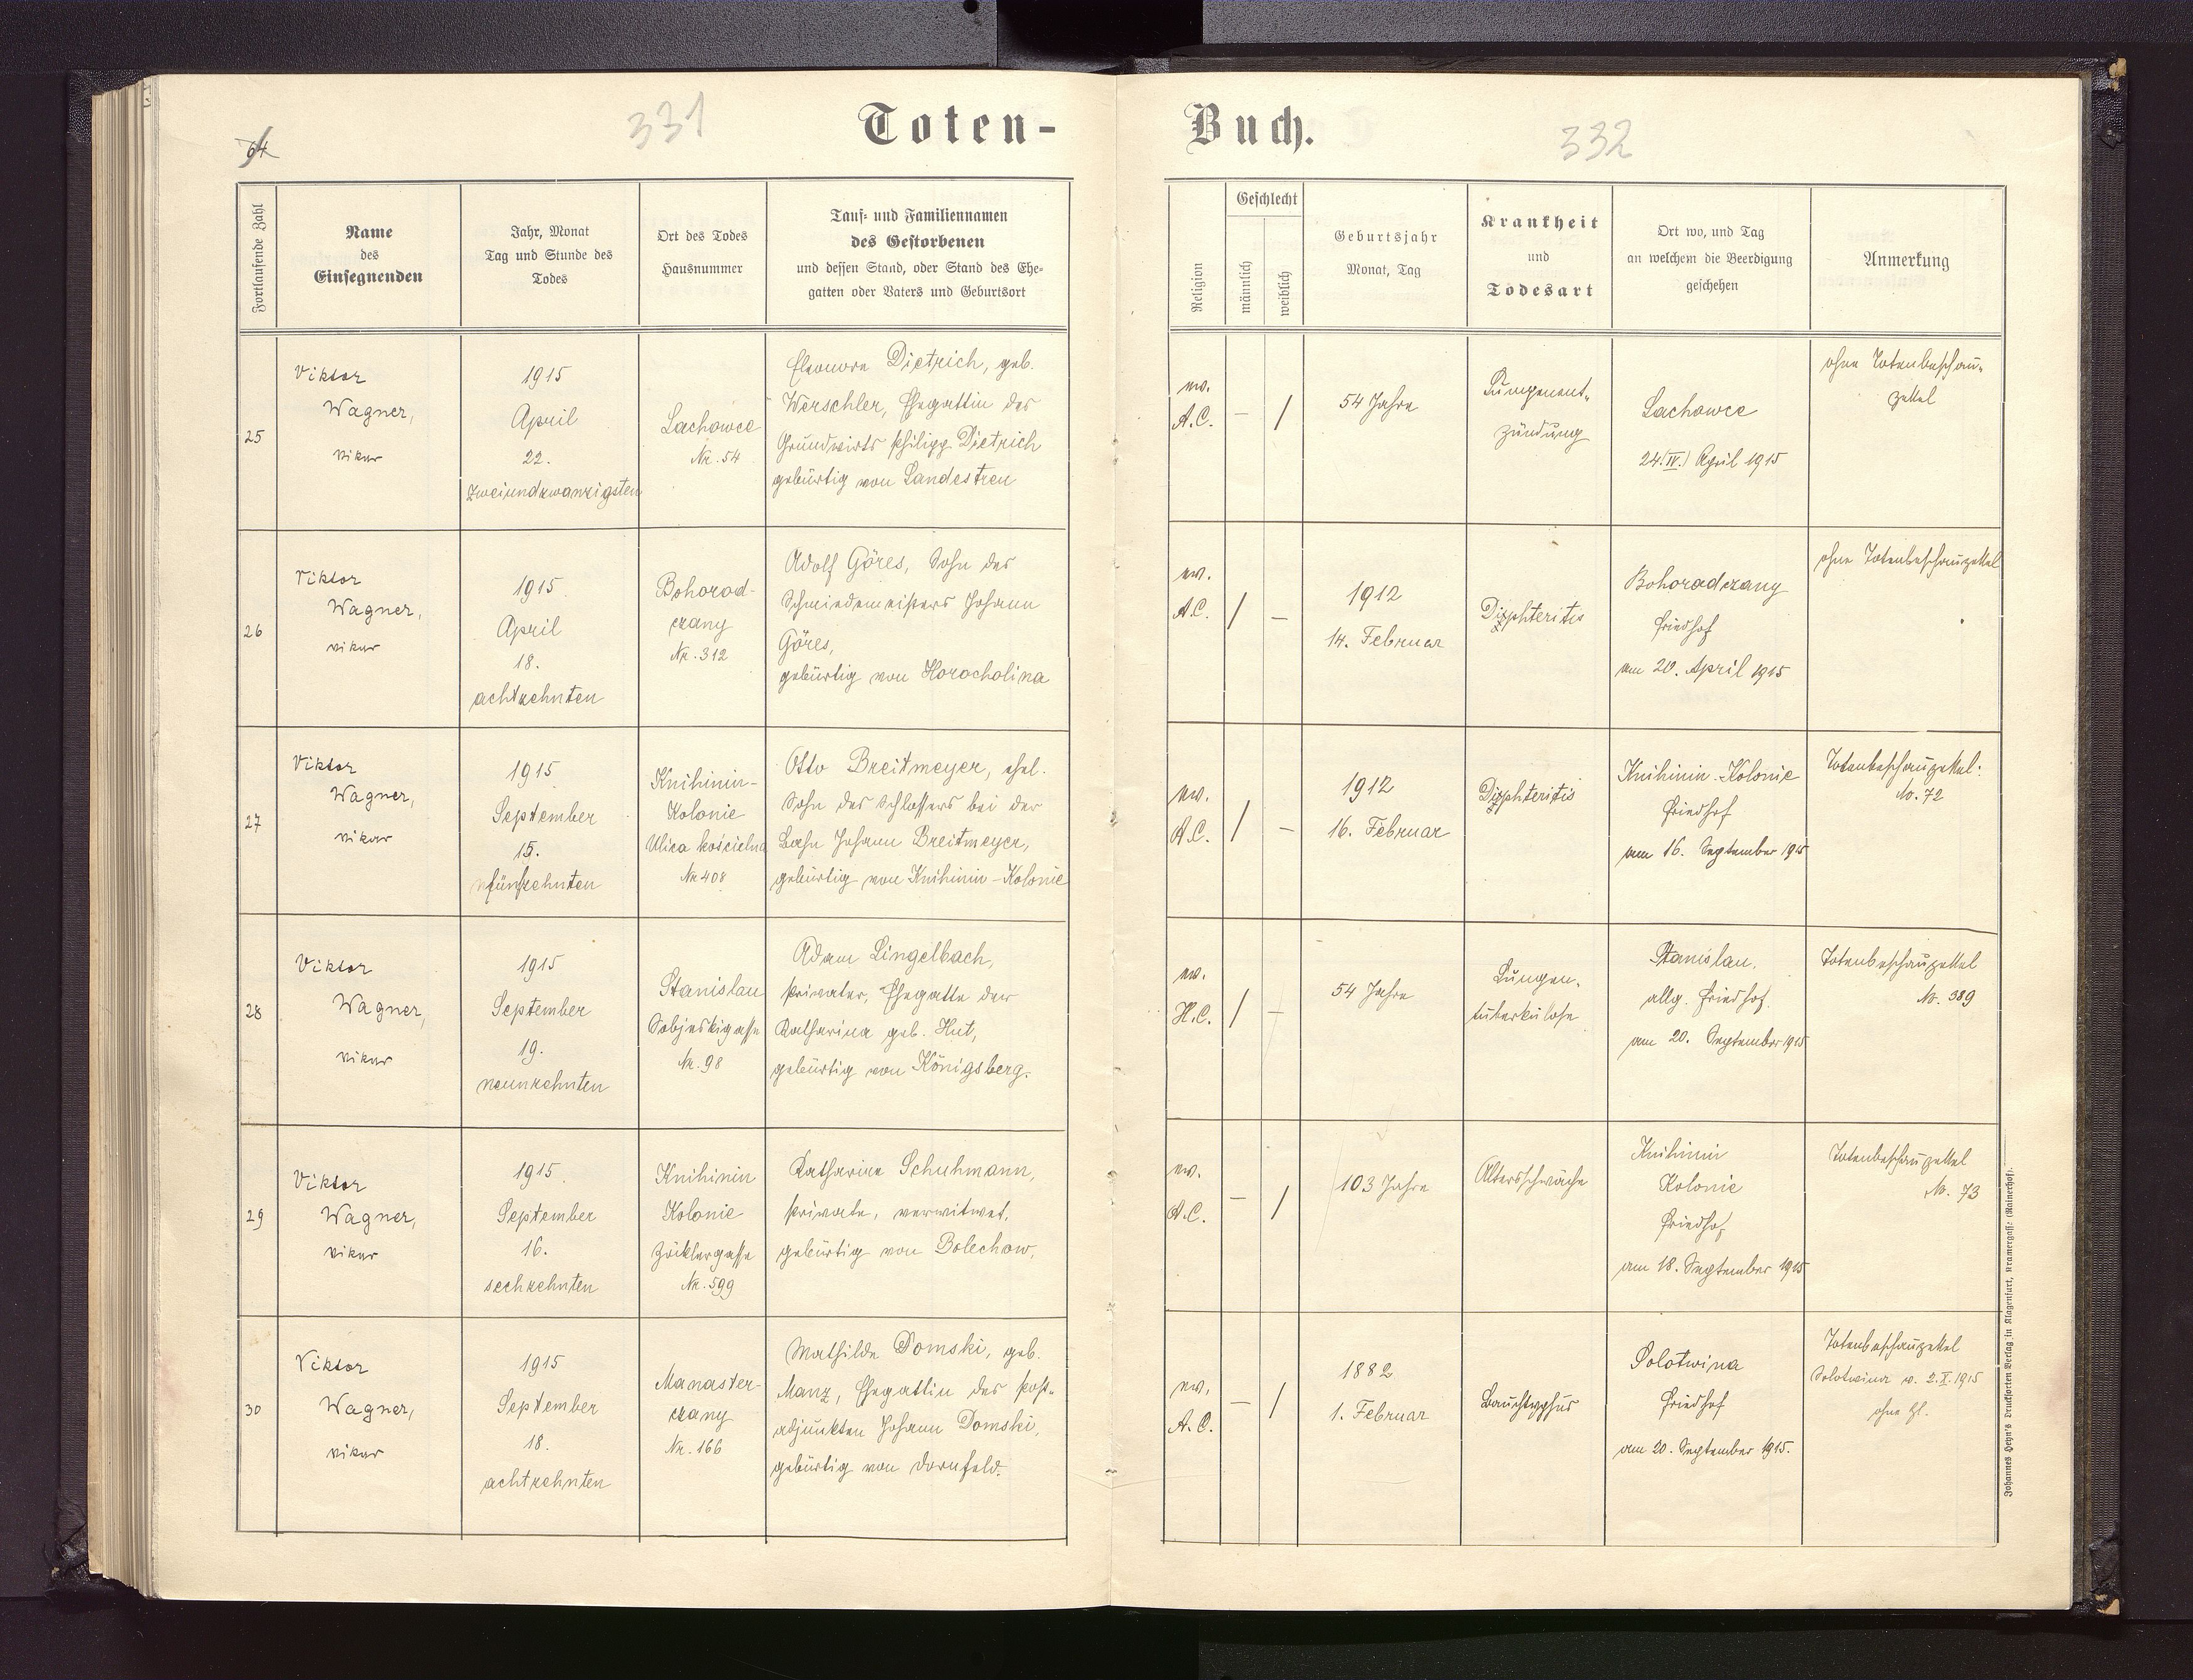 64
331
Toten-
Buch.
332
Fortlaufende Zahl
Name
des
Einsegnenden
Jahr, Monat
Tag und Stunde des
Todes
Ort des Todes
Hausnummer
Tauf- und Familiennamen
des Gestorbenen
und dessen Stand, oder Stand des Ehe-
gatten oder Vaters und Geburtsort
Religion
Geschlecht
männlich
weiblich
Geburtsjahr
Monat, Tag
Krankheit
und
Todesart
Ort wo, und Tag
an welchem die Beerdigung
geschehen
Anmerkung
25
Viktor
Wagner,
Vikar
1915
April
22.
zweiundzwanzigsten
Lachowce
Nr. 54
Eleonore Dietrich, geb.
Werschler, Ehegattin des
Grundwirts Philipp Dietrich
gebürtig von Landestreu
ev.
A.C.
–
/
54 Jahre
Lungenent-
zündung
Lachowce
24.(IV.) April 1915
ohne Totenbeschau-
zettel
26
Viktor
Wagner,
Vikar
1915
April
18.
achtzehnten
Bohorod-
czany
Nr. 312
Adolf Göres, Sohn des
Schmiedemeisters Johann
Göres,
gebürtig von Horocholina
ev.
A.C.
/
–
1912
14. Februar
Diphteritis
Bohorodczany
Friedhof
am 20. April 1915
ohne Totenbeschauzettel
27
Viktor
Wagner,
Vikar
1915
September
15.
fünfzehnten
Knihinin-
Kolonie
Ulica kościelna
Nr 408
Otto Breitmeyer, ehel.
Sohn des Schlossers bei der
Bahn Johann Breitmeyer,
gebürtig von Knihinin-Kolonie
ev.
A.C.
/
–
1912
16. Februar
Diphteritis
Knihinin-Kolonie
Friedhof
am 16. September 1915
Totenbeschauzettel:
Nr. 72
28
Viktor
Wagner,
Vikar
1915
September
19.
neunzehnten
Stanislau
Sobieskigasse
Nr. 98
Adam Lingelbach,
Privater, Ehegatte der
Katharina geb. Hut,
gebürtig von Königsberg.
ev.
H.C.
/
–
54 Jahre
Lungen-
tuberkulose
Stanislau,
allg. Friedhof.
am 20. September 1915
Totenbeschauzettel
Nr. 389
29
Viktor
Wagner,
Vikar
1915
September
16.
sechzehnten
Knihinin
Kolonie
Zöcklergasse
Nr. 599
Katharina Schuhmann,
Private, verwitwet,
gebürtig von Bolechow,
ev.
A.C.
–
/
103 Jahre
Altersschwäche
Knihinin
Kolonie
Friedhof
am 18. September 1915
Totenbeschauzettel
Nr. 73
30
Viktor
Wagner,
Vikar
1915
September
18.
achtzehnten
Manaster-
czany
Nr. 166
Mathilde Domski, geb.
Manz, Ehegattin des Post-
adjunkten Johann Domski,
gebürtig von Dornfeld.
ev.
A.C.
–
/
1882
1. Februar
Bauchtyphus
Solotwina
Friedhof
am 20. September 1915.
Totenbeschauzettel
Solotwina v. 2.X.1915
ohne Zl.
Johannes Heyn's Drucksorten Verlag in Klagenfurt, Kramergasse (Rainerhof).